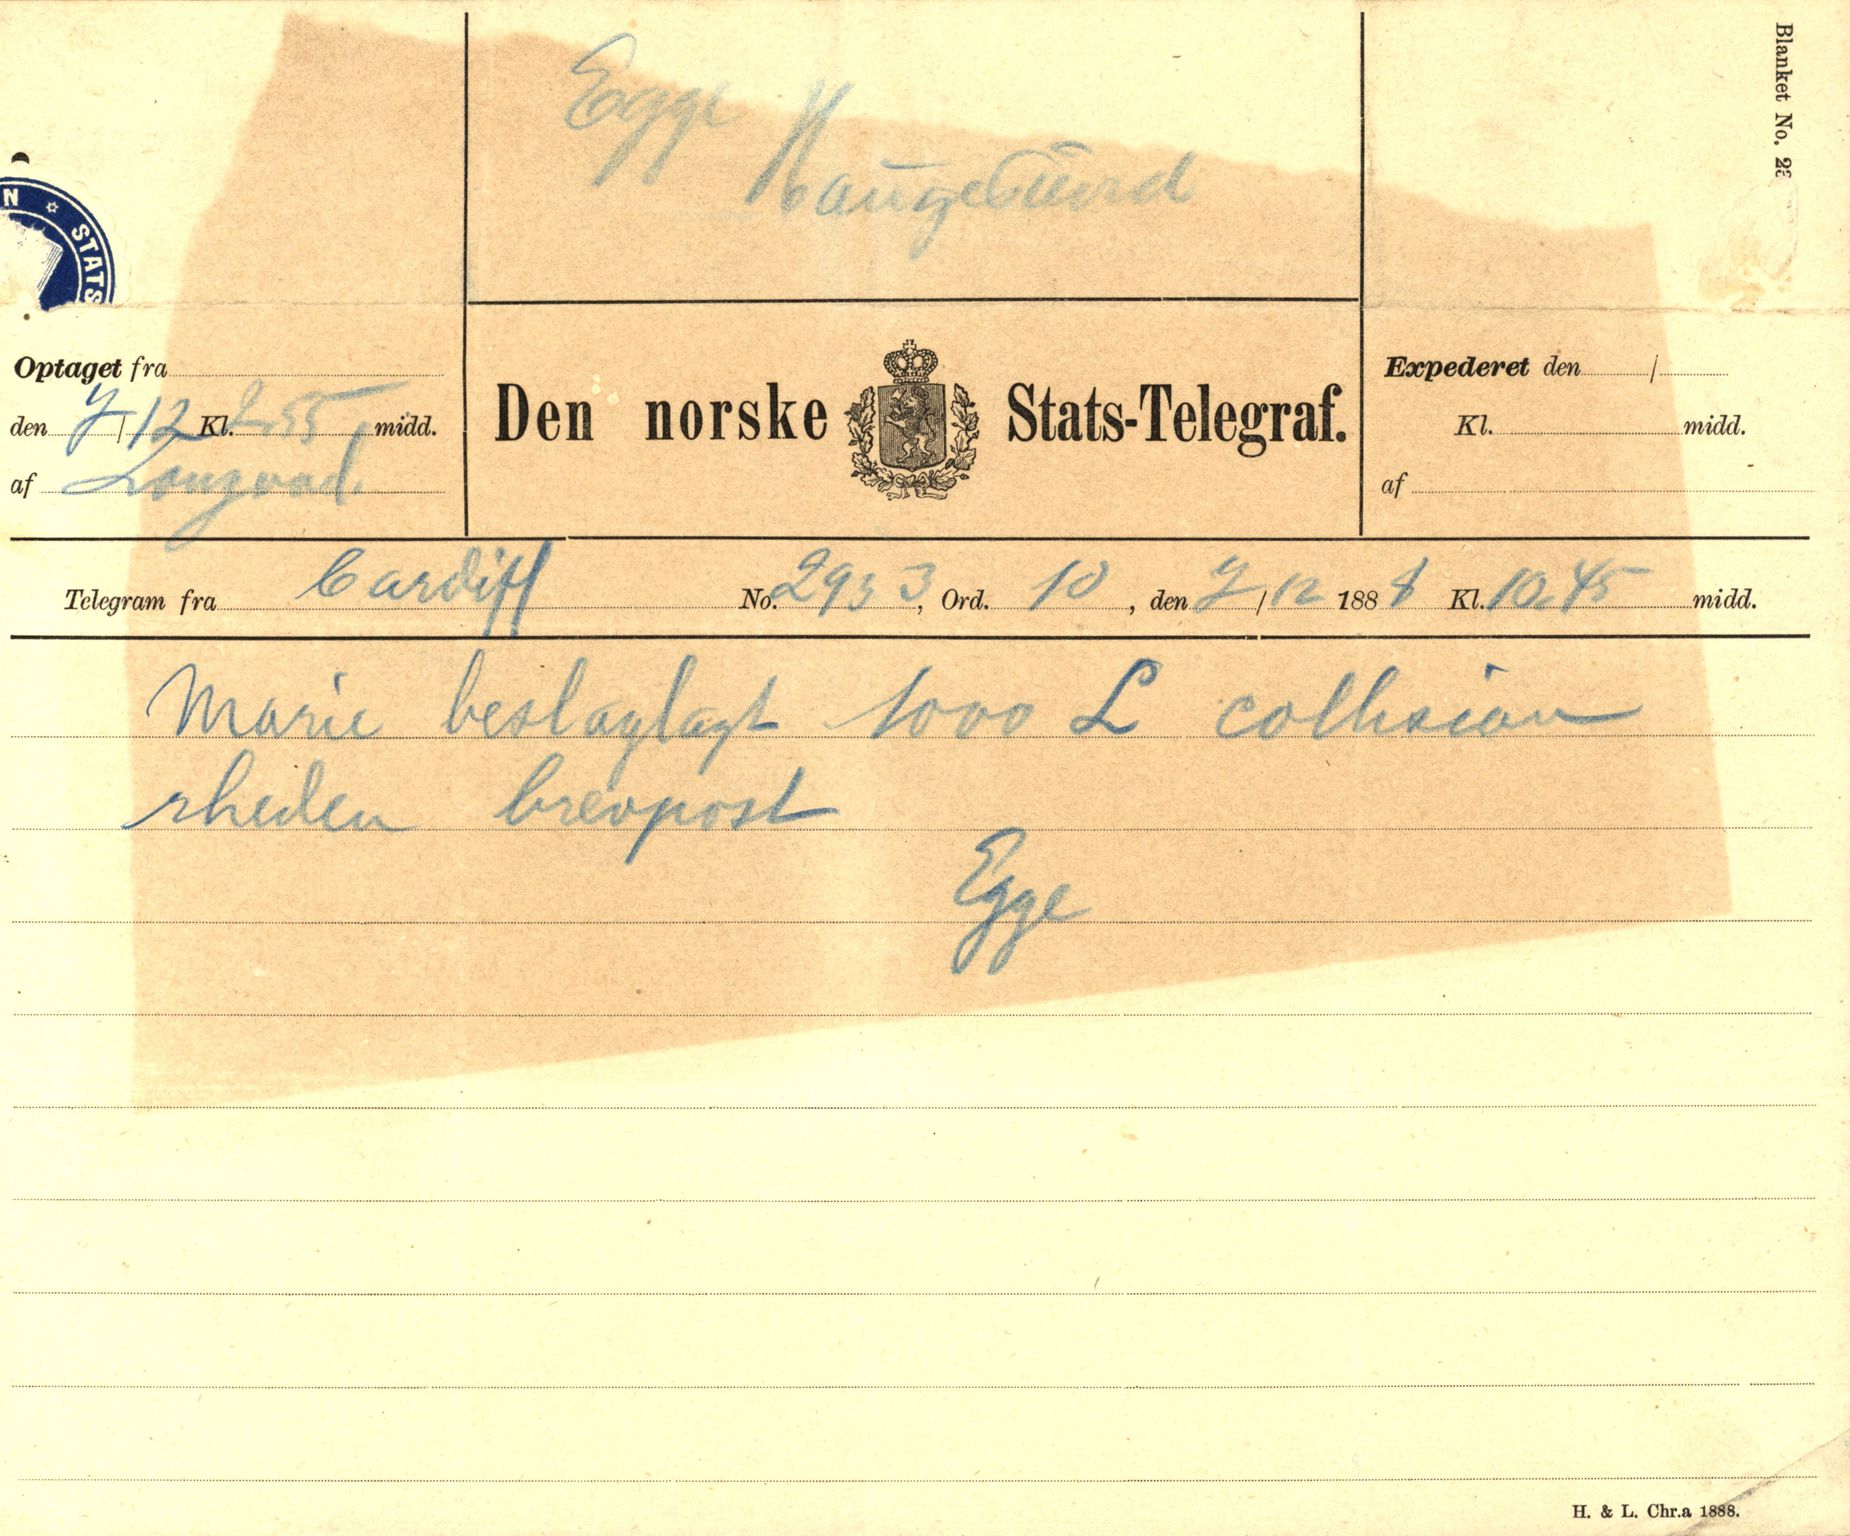 Blanket No. 22
Egge Haugesund
N ✡ STATS
Optaget fra
den 7/12 Kl. 2.55 midd.
af
Den norske Stats-Telegraf.
Expederet den /
Kl. midd.
af
Telegram fra Cardiff No. 2933, Ord. 10, den 7/12 1888 Kl. 10.45 midd.
Marie beslaglagt 1000 £ collision
rheden brevpost
Egge
H. & L. Chr.a 1888.